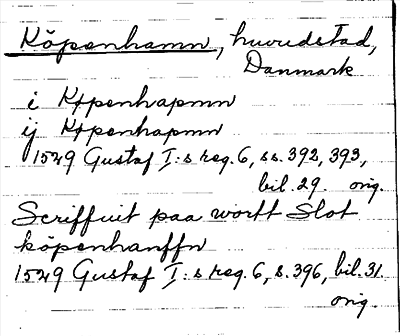 Köpenhamn, huvudstad,
Danmark
i Køpenhapmn
ij Køpenhapmn
1549 Gustaf I:s reg. 6, ss. 392, 393,
bil. 29. orig.
Scriffuit paa wortt Slot
köpenhanffn
1549 Gustaf I:s reg. 6, s. 396, bil. 31.
orig.